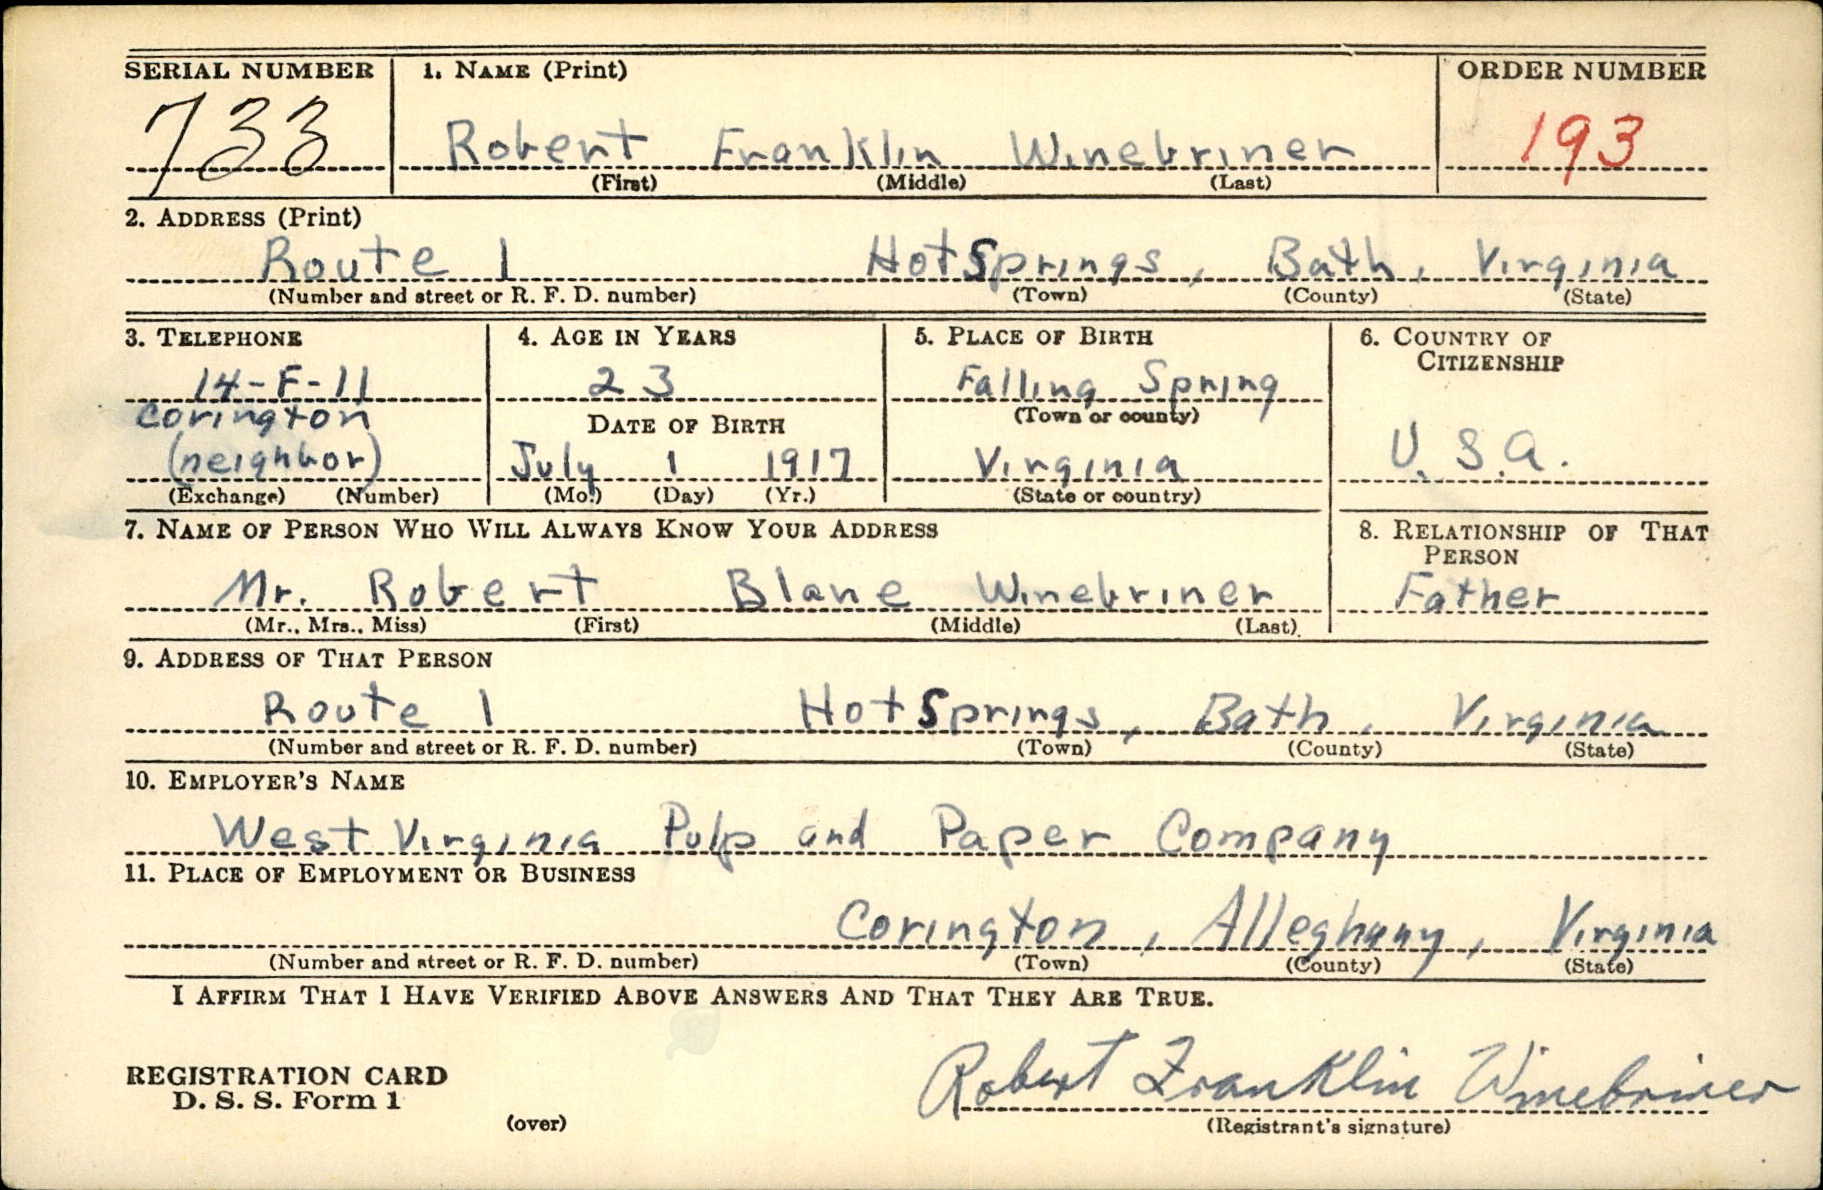 SERIAL NUMBER 1. NAME (Print) ORDER NUMBER
733 Robert Franklin Winebriner 193
(First) (Middle) (Last)
2. ADDRESS (Print)
Route 1 Hot Springs, Bath, Virginia
(Number and street or R. F. D. number) (Town) (County) (State)
3. TELEPHONE 4. AGE IN YEARS 5. PLACE OF BIRTH 6. COUNTRY OF
CITIZENSHIP
14-F-11 23 Falling Spring
Covington DATE OF BIRTH (Town or county)
(neighbor) July 1 1917 Virginia U.S.A.
(Exchange) (Number) (Mo.) (Day) (Yr.) (State or country)
7. NAME OF PERSON WHO WILL ALWAYS KNOW YOUR ADDRESS 8. RELATIONSHIP OF THAT
PERSON
Mr. Robert Blane Winebriner Father
(Mr., Mrs., Miss) (First) (Middle) (Last)
9. ADDRESS OF THAT PERSON
Route 1 Hot Springs, Bath, Virginia
(Number and street or R. F. D. number) (Town) (County) (State)
10. EMPLOYER'S NAME
West Virginia Pulp and Paper Company
11. PLACE OF EMPLOYMENT OR BUSINESS
Covington, Alleghany, Virginia
(Number and street or R. F. D. number) (Town) (County) (State)
I AFFIRM THAT I HAVE VERIFIED ABOVE ANSWERS AND THAT THEY ARE TRUE.
REGISTRATION CARD Robert Franklin Winebriner
D. S. S. Form 1
(over) (Registrant's signature)